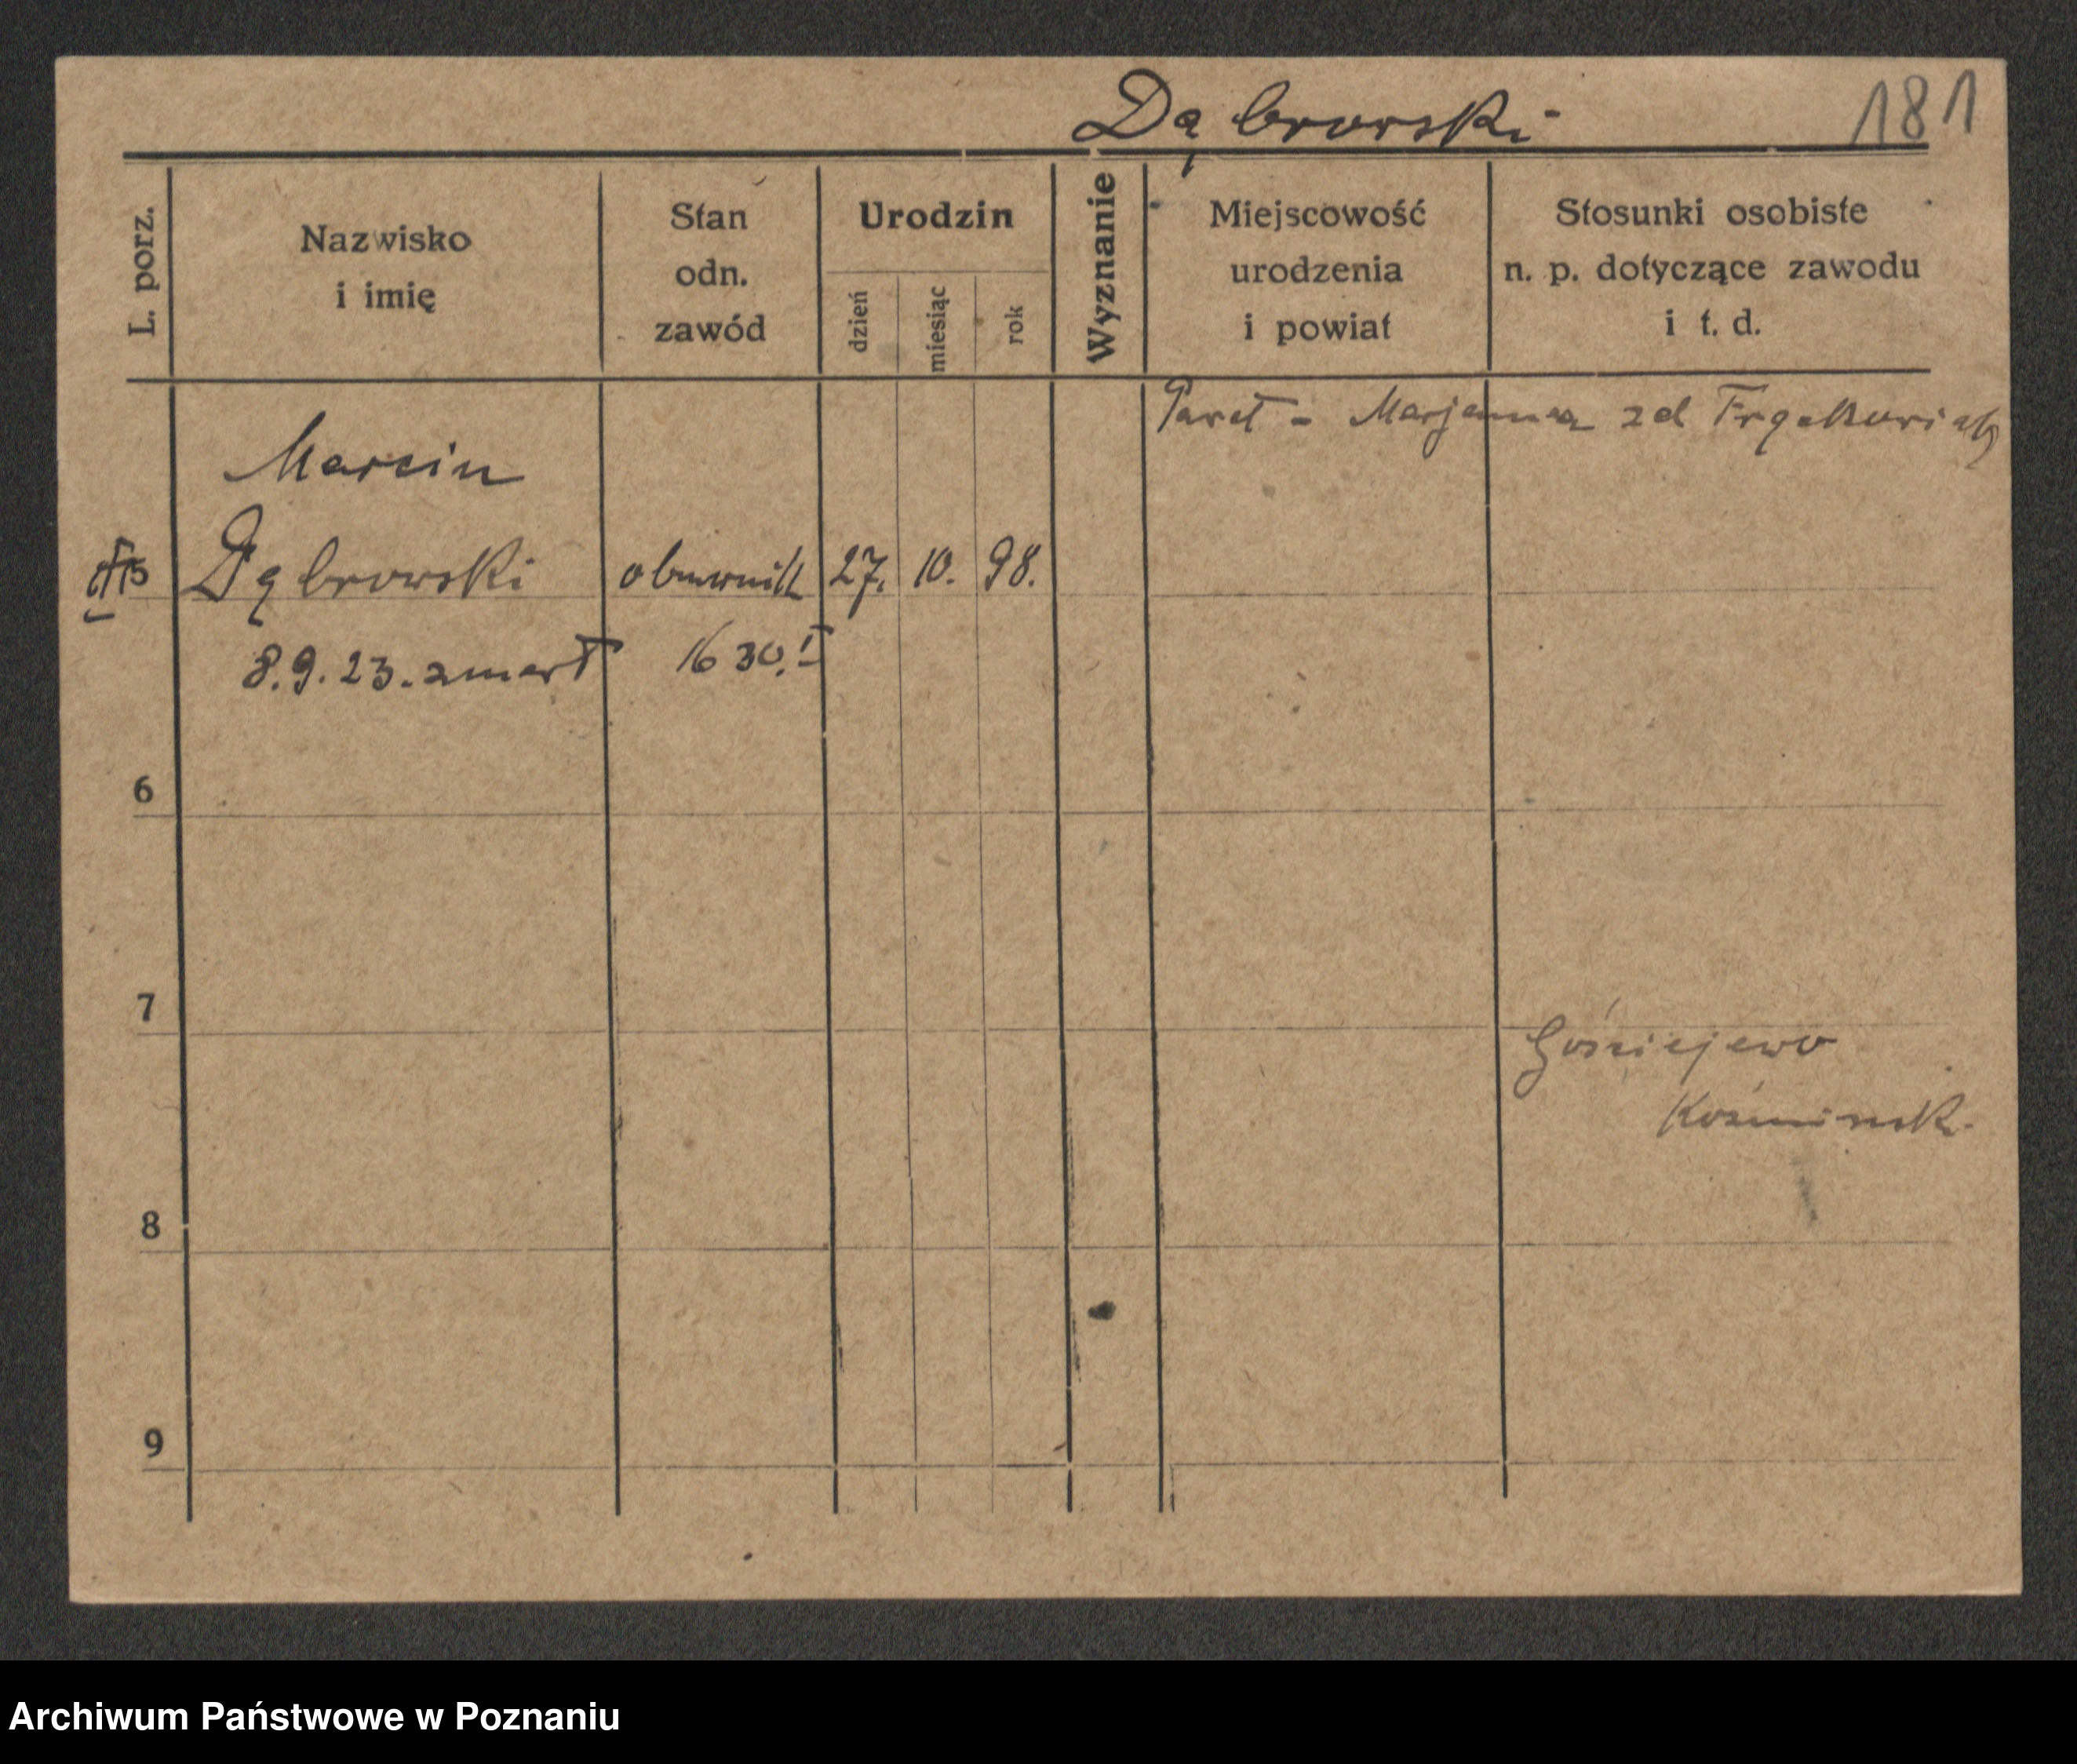 Dąbrowski
181
L. porz.
Nazwisko
i imię
Stan
odn.
zawód
Urodzin
dzień
miesiąc
rok
Wyznanie
Miejscowość
urodzenia
i powiat
Stosunki osobiste
n. p. dotyczące zawodu
i t. d.
Paweł - Marjanna zd
Marcin
5 Dąbrowski obuwnik 27. 10. 98.
8.9.23. zmarł 1630.I
6
7
8
9
Archiwum Państwowe w Poznaniu